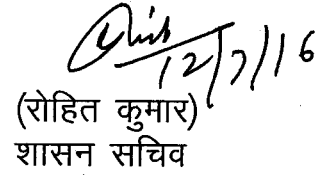 12/7/16
(रोहित कुमार)
शासन सचिव